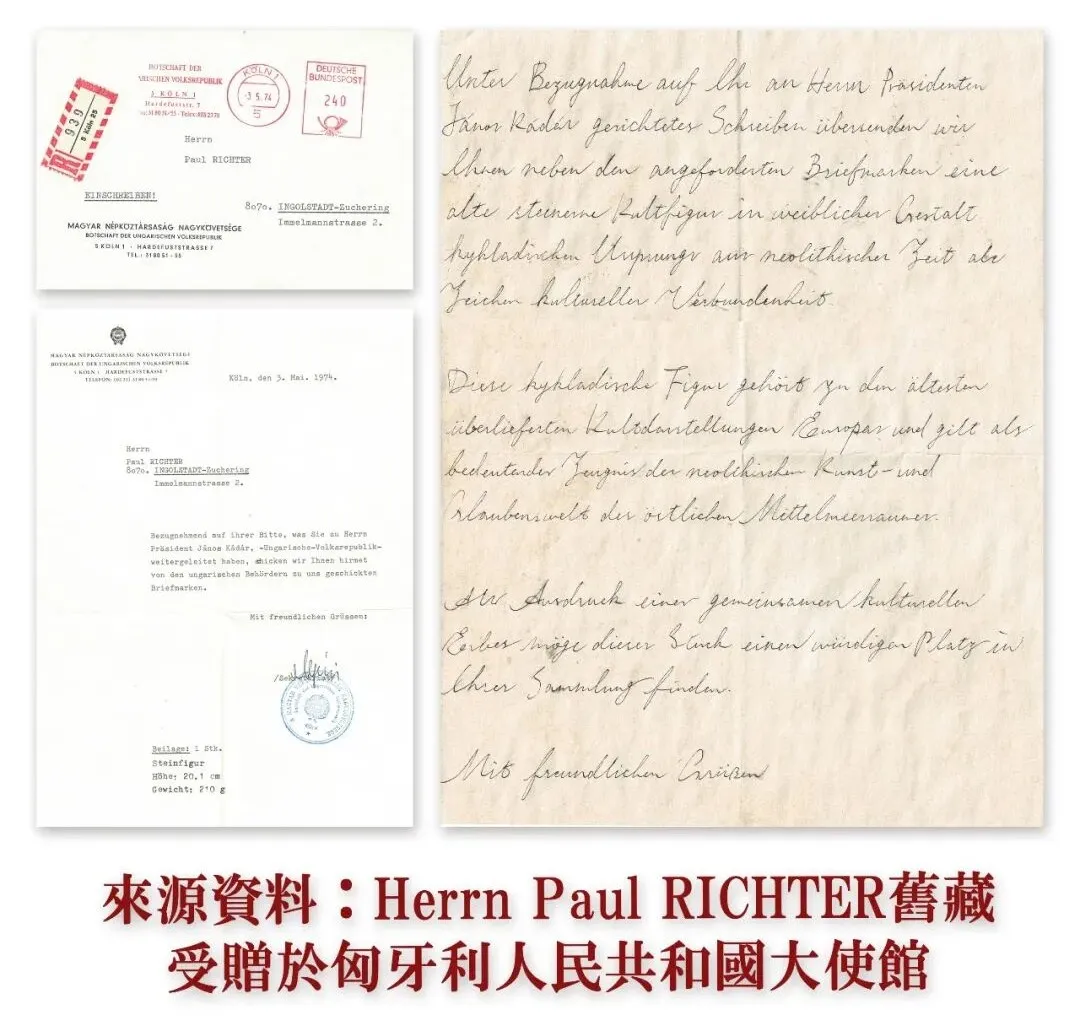 BOTSCHAFT DER
UNGARISCHEN VOLKSREPUBLIK
5 KÖLN 1
Hardefuststr. 7
KÖLN 1
-3.5.74
5
DEUTSCHE
BUNDESPOST
240
R
939
5 Köln 25
Herrn
Paul RICHTER
EINSCHREIBEN!
8070. INGOLSTADT-Zuchering
Immelmannstrasse 2.
MAGYAR NÉPKÖZTÁRSASÁG NAGYKÖVETSÉGE
BOTSCHAFT DER UNGARISCHEN VOLKSREPUBLIK
5 KÖLN 1 · HARDEFUSTSTRASSE 7
TEL.: 31 80 51 - 55
MAGYAR NÉPKÖZTÁRSASÁG NAGYKÖVETSÉGE
BOTSCHAFT DER UNGARISCHEN VOLKSREPUBLIK
5 KÖLN 1 HARDEFUSTSTRASSE 7
Köln, den 3. Mai. 1974.
Herrn
Paul RICHTER
8070. INGOLSTADT-Zuchering
Immelmannstrasse 2.
Bezugnehmend auf ihrer Bitte, was Sie zu Herrn
Präsident János Kádár, -Ungarische-Volksrepublik-
weitergeleitet haben, schicken wir Ihnen hirmet
von den ungarischen Behördern zu uns geschickten
Briefmarken.
Mit freundlichen Grüssen:
Beilage: 1 Stk.
Steinfigur
Höhe: 20,1 cm
Gewicht: 210 g
Unter Bezugnahme auf Ihr an Herrn Präsidenten
János Kádár gerichtetes Schreiben übersenden wir
Ihnen neben den angeforderten Briefmarken eine
alte steinerne Kultfigur in weiblicher Gestalt
kykladischen Ursprungs aus neolithischer Zeit als
Zeichen kultureller Verbundenheit.
Diese kykladische Figur gehört zu den ältesten
überlieferten Kultdarstellungen Europas und gilt als
bedeutender Zeugnis der neolithischen Kunst- und
Glaubenswelt des östlichen Mittelmeerraumes.
Als Ausdruck einer gemeinsamen kulturellen
Erbes möge dieses Stück einen würdigen Platz in
Ihrer Sammlung finden.
Mit freundlichen Grüßen
來源資料：Herrn Paul RICHTER舊藏
受贈於匈牙利人民共和國大使館